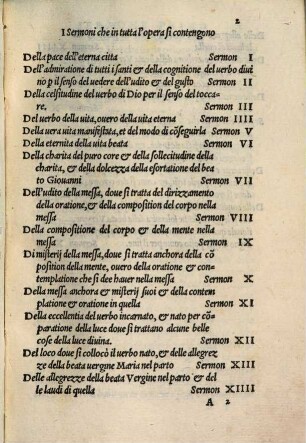 2
I Sermoni che in tutta l'opera si contengono
Della pace dell'eterna citta Sermon I
Dell'admiratione di tutti i santi & della cognitione del uerbo diui
no p il senso del uedere dell'udito & del gusto Sermon II
Della celsitudine del uerbo di Dio per il senso del tocca-
re. Sermon III
Del uerbo della uita, ouero della uita eterna Sermon IIII
Della uera uita manifesta, et del modo di cōseguirla Sermon V
Della eternita della uita beata Sermon VI
Della charita del puro core & della sollecitudine della
charita, & della dolcezza della esortatione del bea
to Giouanni Sermon VII
Dell'udito della messa, doue si tratta del dirizzamento
della oratione, & della composition del corpo nella
messa Sermon VIII
Della compositione del corpo & della mente nella
messa Sermon IX
Di misterij della messa, doue si tratta anchora della cō
position della mente, ouero della oratione & con-
templatione che si dee hauer nella messa Sermon X
Della messa anchora & misterij suoi & della contem
platione & oratione in quella Sermon XI
Della eccellentia del uerbo incarnato, & nato per cō-
paratione della luce doue si trattano alcune belle
cose della luce diuina. Sermon XII
Del loco doue si collocò il uerbo nato, & delle allegrez
ze della beata uergine Maria nel parto Sermon XIII
Delle allegrezze della beata Vergine nel parto & del
le laudi di quella Sermon XIIII
A 2